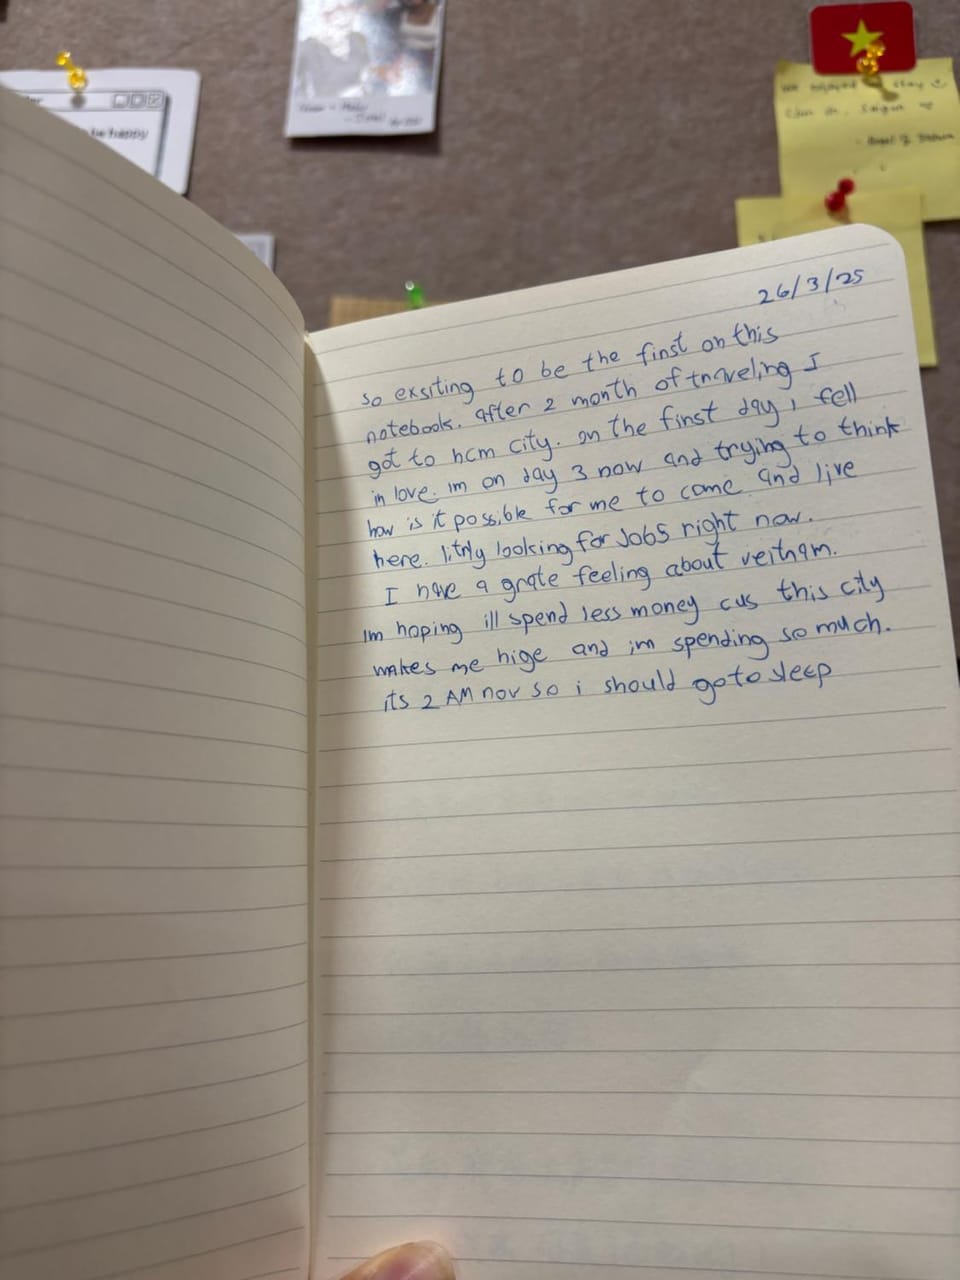 be happy
26/3/25
so exsiting to be the first on this
notebook. after 2 month of traveling I
got to hcm city. on the first day i fell
in love. im on day 3 now and trying to think
how is it possible for me to come and live
here. litrly looking for JobS right now.
I have a grate feeling about veitnam.
Im hoping ill spend less money cus this city
makes me hige and im spending so much.
its 2 AM nov so i should go to sleep